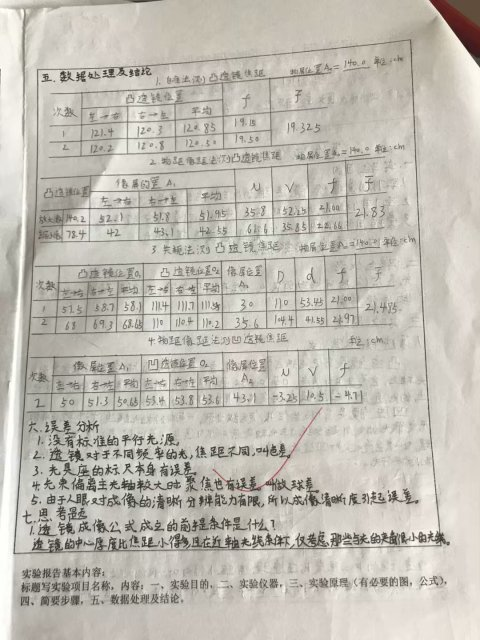 五.数据处理及结论
1.自准法测凸透镜焦距 物屏位置A₀=140.0 单位:cm
次数 凸透镜位置 f f̄
左→右 右→左 平均
1 121.4 120.3 120.85 19.15 19.325
2 120.2 120.8 120.50 19.50
2.物距像距法测凸透镜焦距 物屏位置A₀=140.0 单位:cm
凸透镜位置 像屏位置A₁ u v f f̄
左→右 右→左 平均
放大 52.1 51.8 51.95 35.8 52.25 21.00 21.83
缩小 78.4 42 43.1 42.55 61.6 35.85 22.66
3.共轭法测凸透镜焦距 物屏位置A₀=140.0 单位:cm
次数 凸透镜位置O₁ 凸透镜位置O₂ 像屏位置A₁ D d f f̄
左→右 右→左 平均 左→右 右→左 平均
1 57.5 58.7 58.1 111.4 111.7 30 110 53.45 21.00 21.485
2 68 69.3 68.65 110 110.4 110.2 35.6 104.4 41.55 21.97
4.物距像距法测凹透镜焦距 单位:cm
次数 像屏位置A₁ 凹透镜位置O₂ 像屏位置A₂ u v f
左→右 右→左 平均 左→右 右→左 平均
2 50 51.3 50.65 53.4 53.8 53.6 43.1 -3.25 10.5 -4.71
六.误差分析
1.没有标准的平行光源。
2.透镜对于不同频率的光,焦距不同,叫色差。
3.光具座的标尺本身有误差。
4.光束偏离主光轴较大时聚焦也有误差,叫做球差
5.由于人眼对成像的清晰分辨能力有限,所以成像清晰度引起误差。
七.思考题
1.透镜成像公式成立的前提条件是什么?
透镜的中心厚度比焦距小得多且在近轴光线条件下,仅考虑那些与光的夹角很小的光线。
实验报告基本内容:
标题写实验项目名称,内容:一、实验目的,二、实验仪器,三、实验原理(有必要的图,公式),
四、简要步骤,五、数据处理及结论。